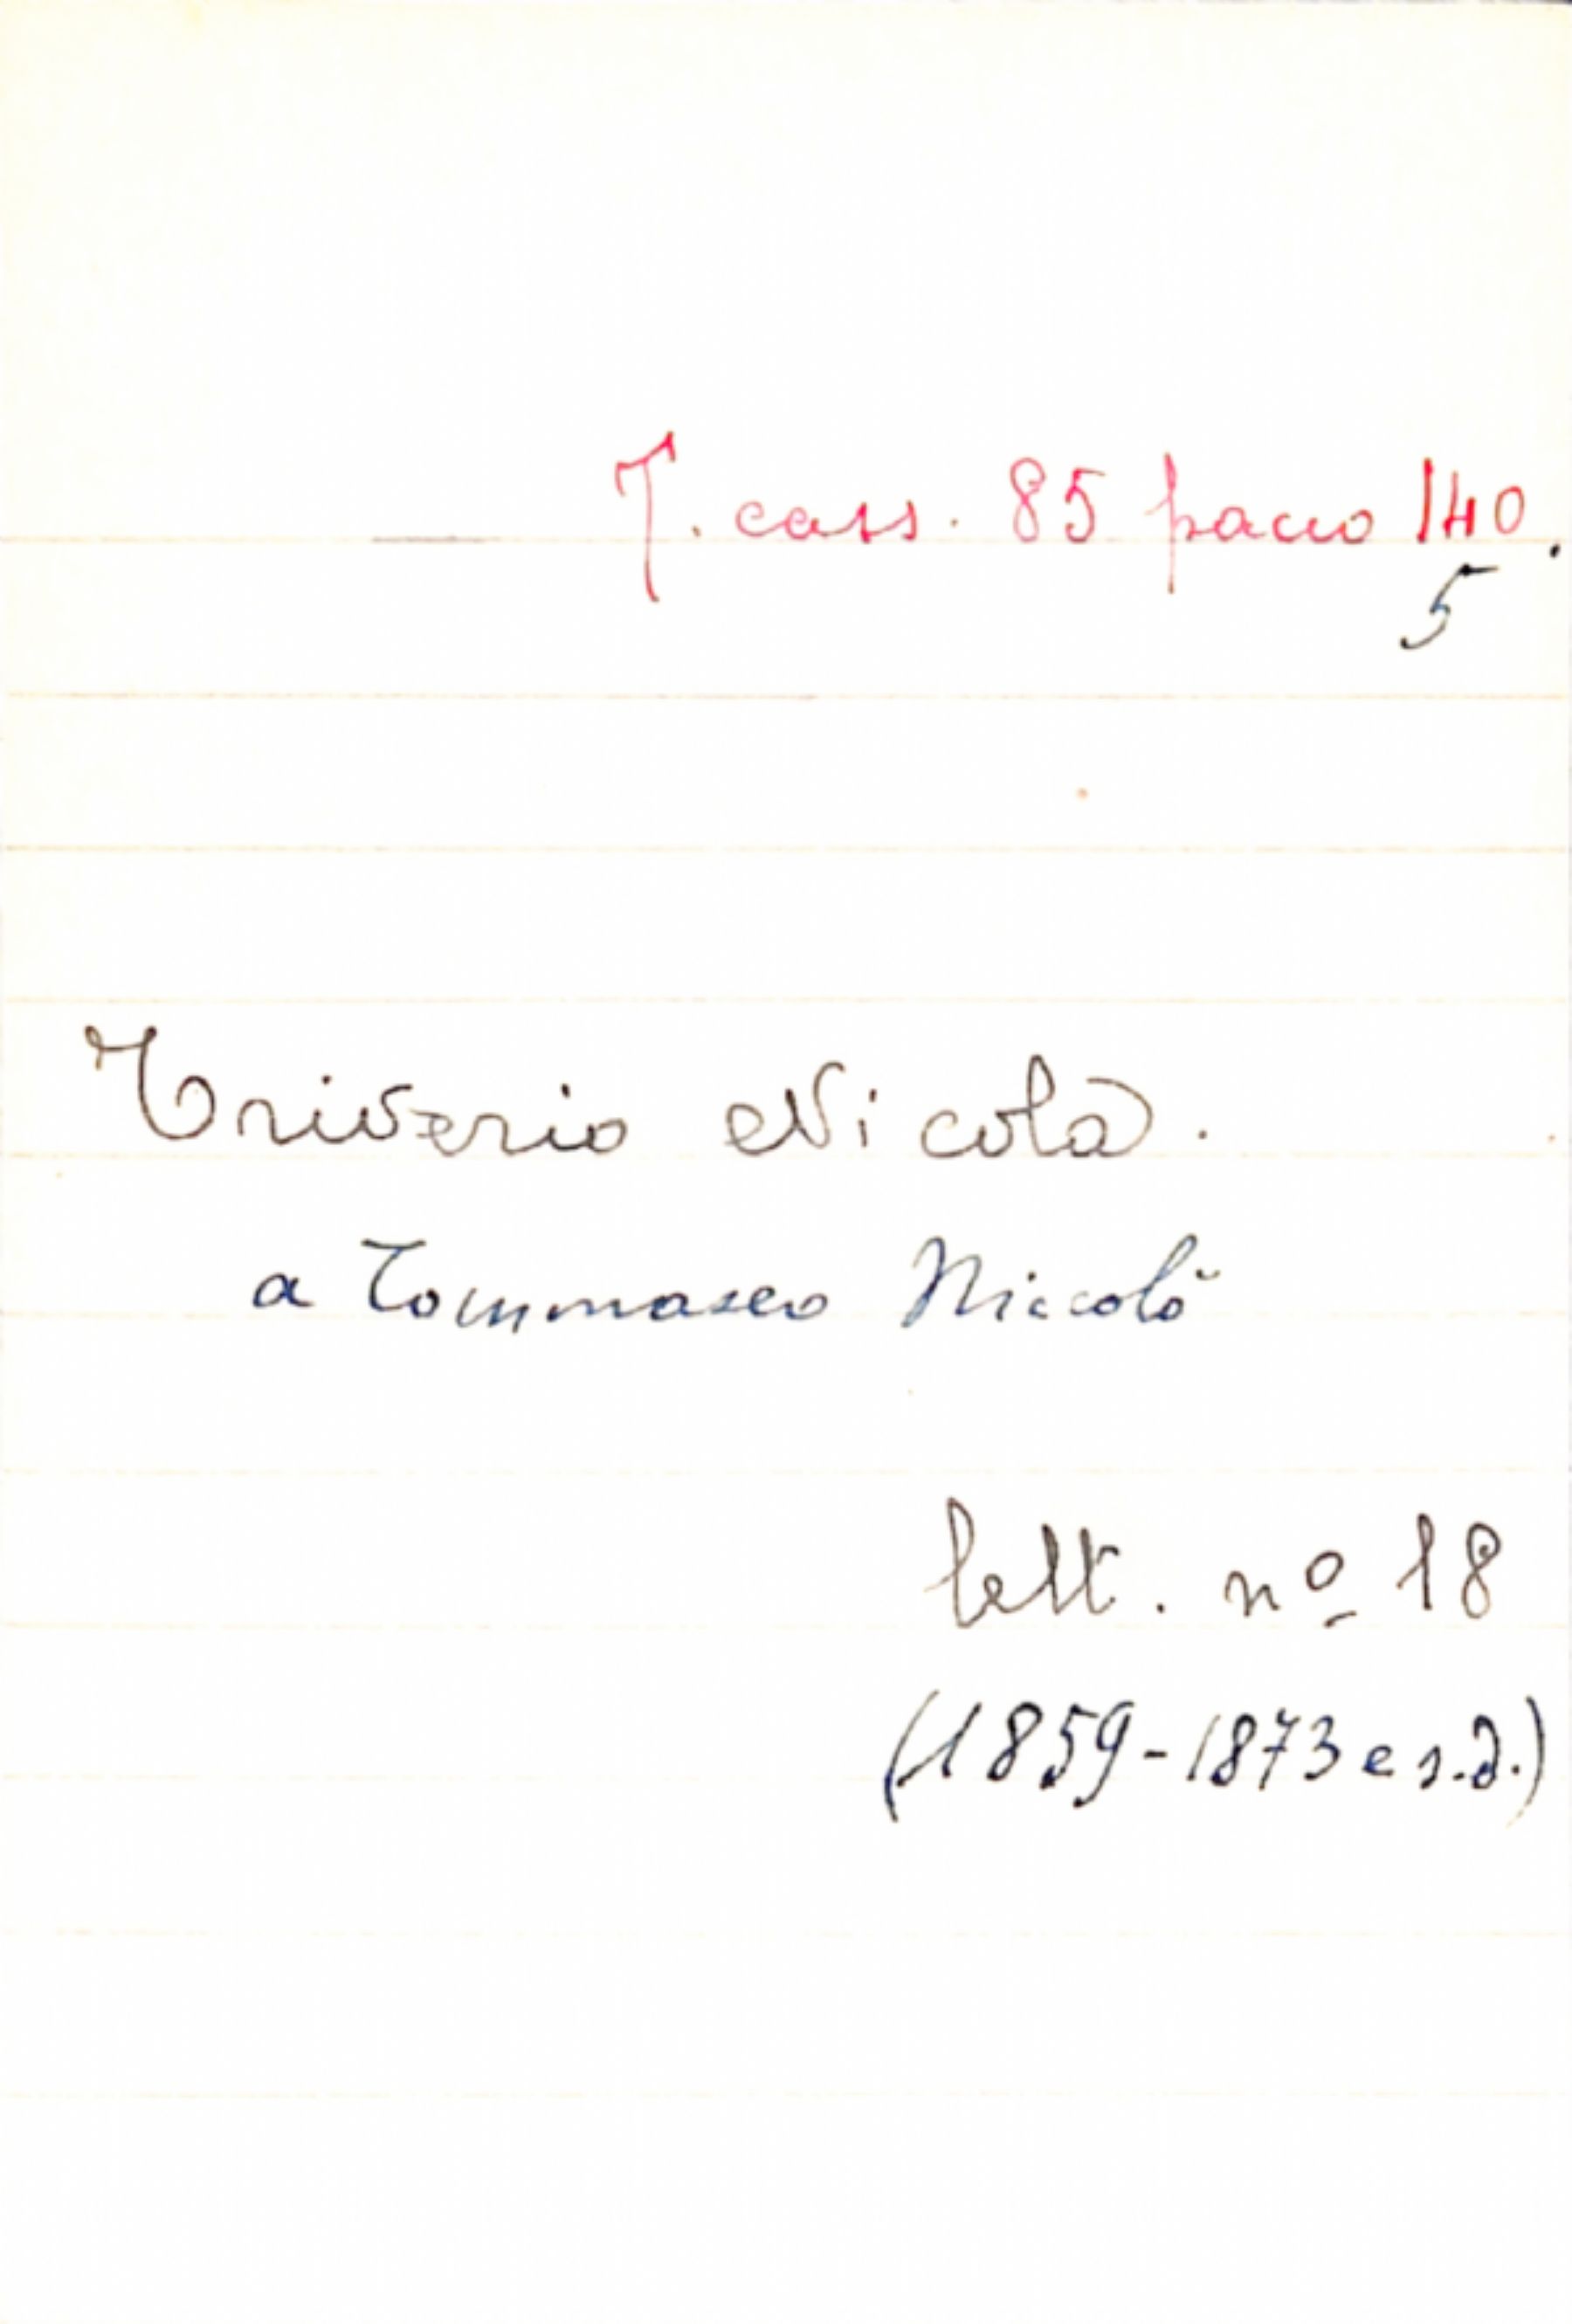 T. cass. 85 pacco 140.
5
Triverio Nicola.
a Tommaseo Niccolò
lett. nº 18
(1859-1873 e s.d.)